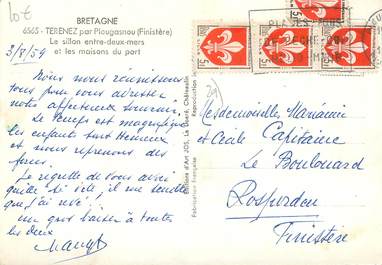 10 €
BRETAGNE
6565 - TERENEZ par Plougasnou (Finistère)
Le sillon entre-deux-mers
et les maisons du port
3/8/59
Nous nous réunissons
tous pour vous adresser
notre affectueux souvenir.
Le temps est magnifique
les enfants sont heureux
et nous reprenons des
forces.
Je regrette de vous avoir
quitté si vite, il me semble
que j'ai rêvé !
un gros baiser à toutes
les deux
Editions d'Art JOS, Le Doaré, Châteaulin
Fabrication Française
Reproduction
29
PLAGES
PÊCHE
Mesdemoiselles
et Cécile Capitaine
Le Boulouard
Rosporden
Finistère